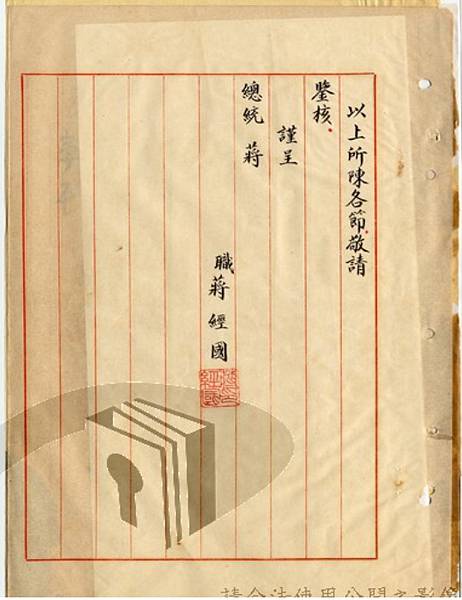 以上所陳各節.敬請
鑒核.
謹呈
總統 蔣
職蔣經國
蔣經國印
請合法使用公開之影像